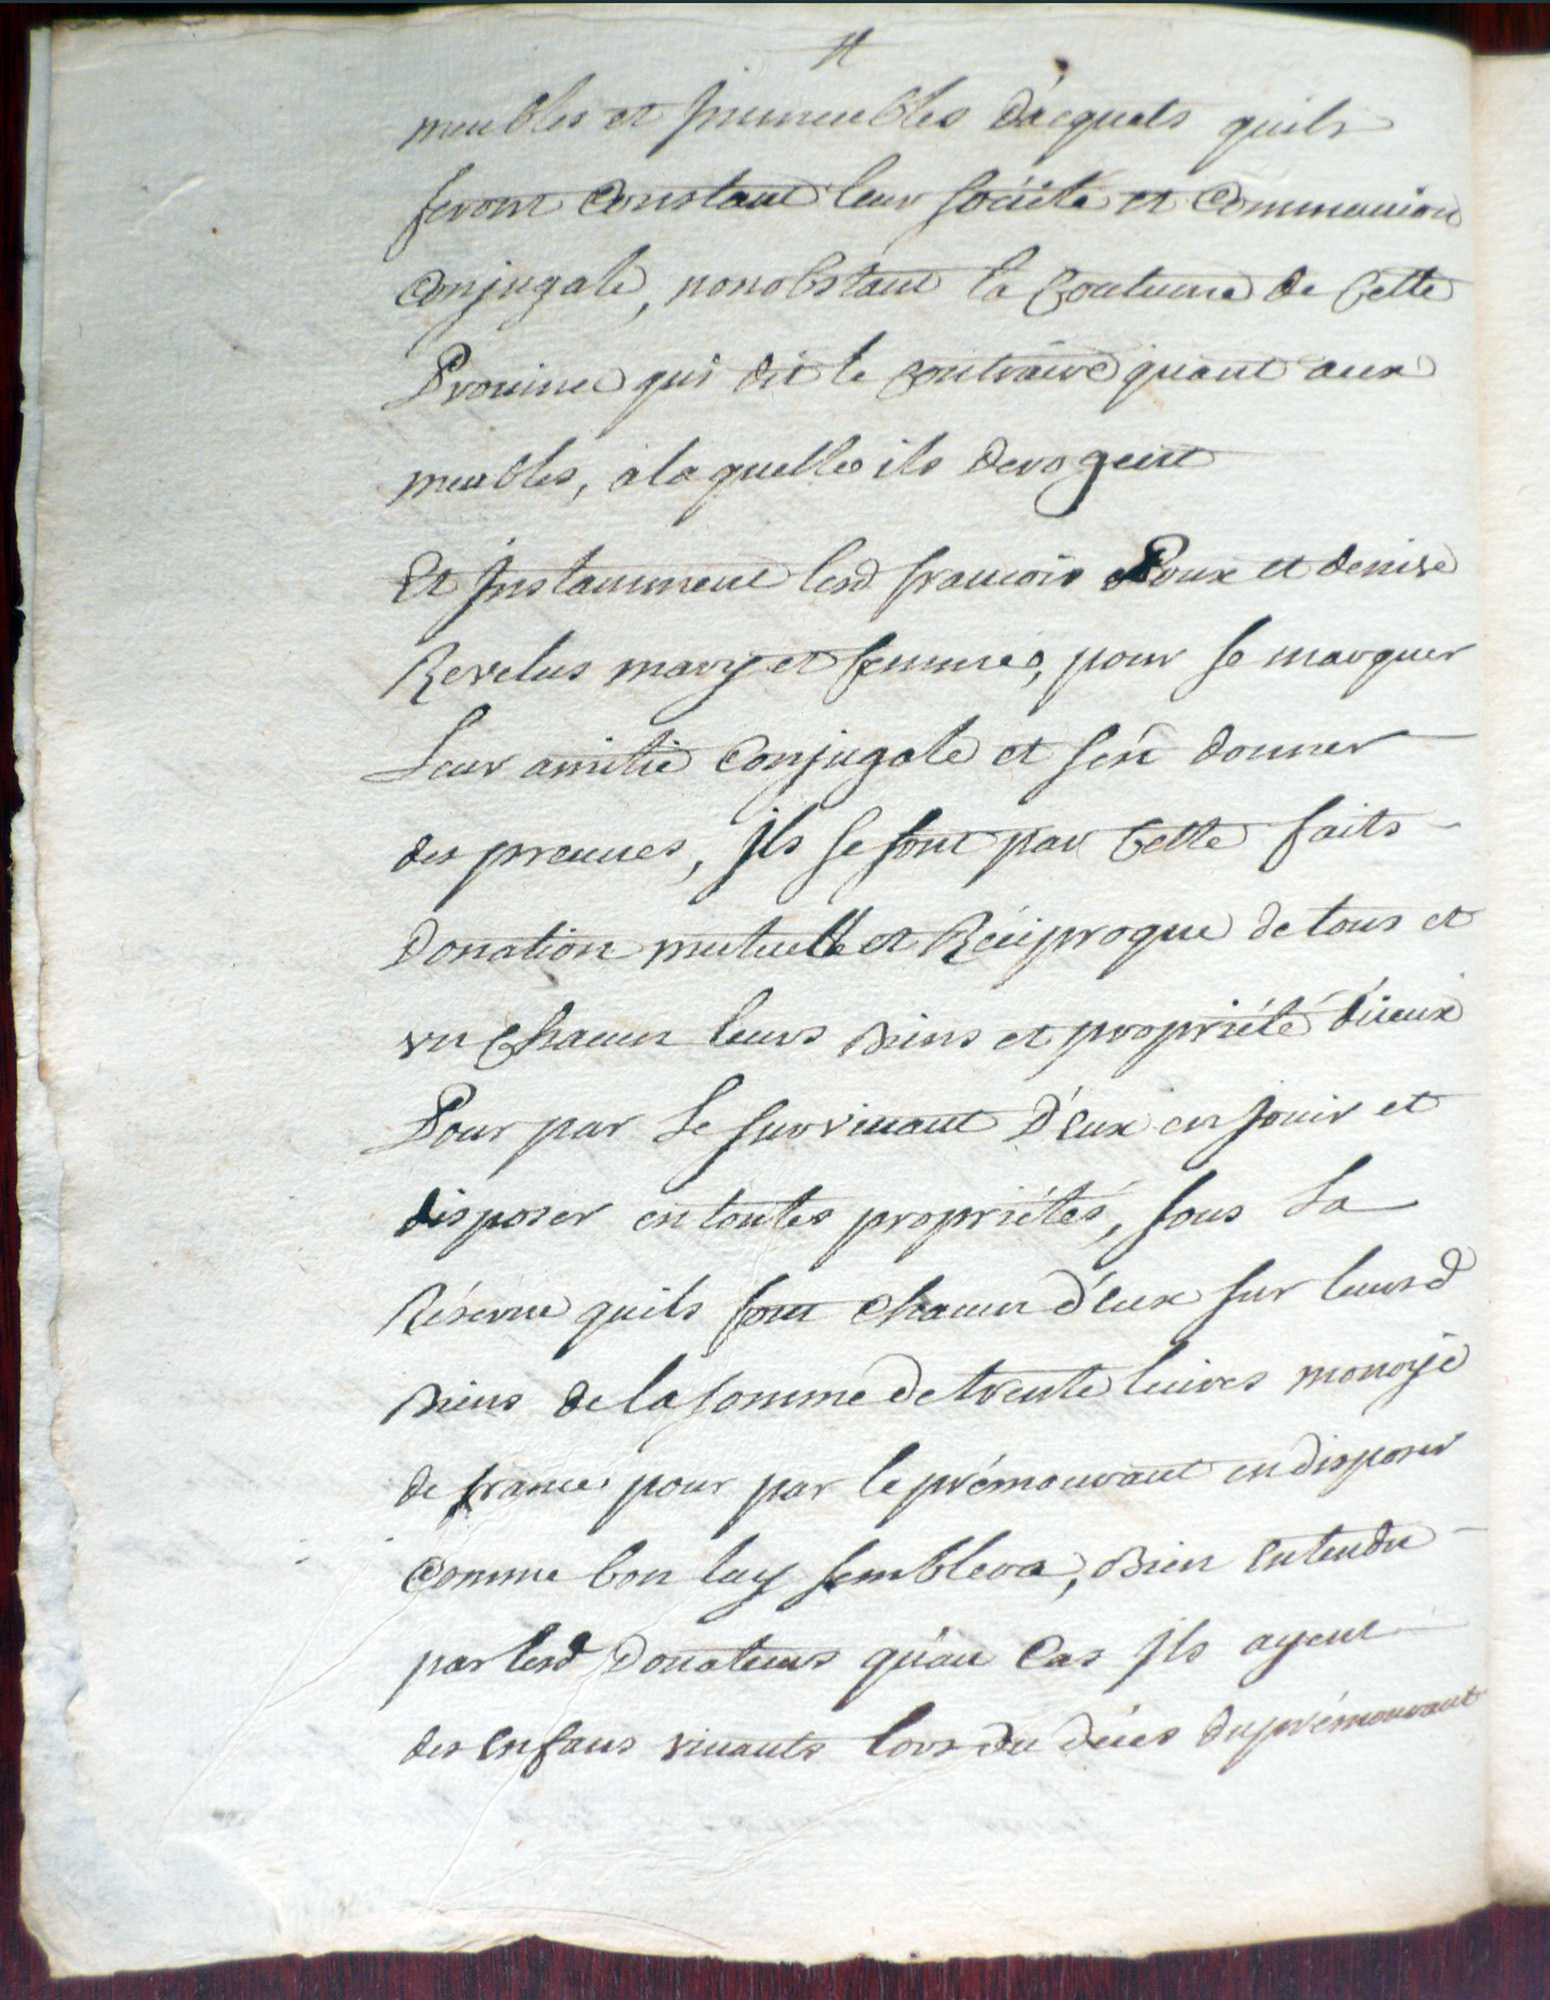 meubles et jmmeubles d'acquets quils
feront Constant leur société et Communion
Conjugale, nonobstant la Coutume de Cette
Province qui dit le Contraire quant aux
meubles, a laquelle ils derogent
Et jnstamment lesd francois Roux et denise
Revelus mary et femme, pour se marquer
Leur amitié Conjugale et s'en donner
des preuues, jls se font par Cette faits
Donation mutuelle et Réciproque de tous et
vn Chacun leurs Biens et propriété d'iceux
Pour par Le suruiuant D'Eux en jouir et
disposer en toutes propriétés, sous La
Réserue quils font Chacun d'Eux sur leursd
Biens de la somme de trente liures monoye
de france pour par le prémourant en disposer
Comme bon luy semblera, Bien Entendu
par lesd Donateurs qu'au Cas jls ayent
des Enfans viuants lors du décès du prémourant